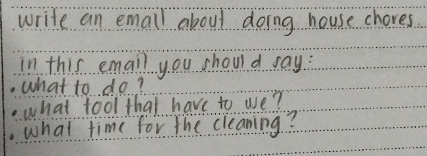 write an email about doing house chores
in this email you should say:
• what to do?
• what tool that have to use?
• what time for the cleaning?